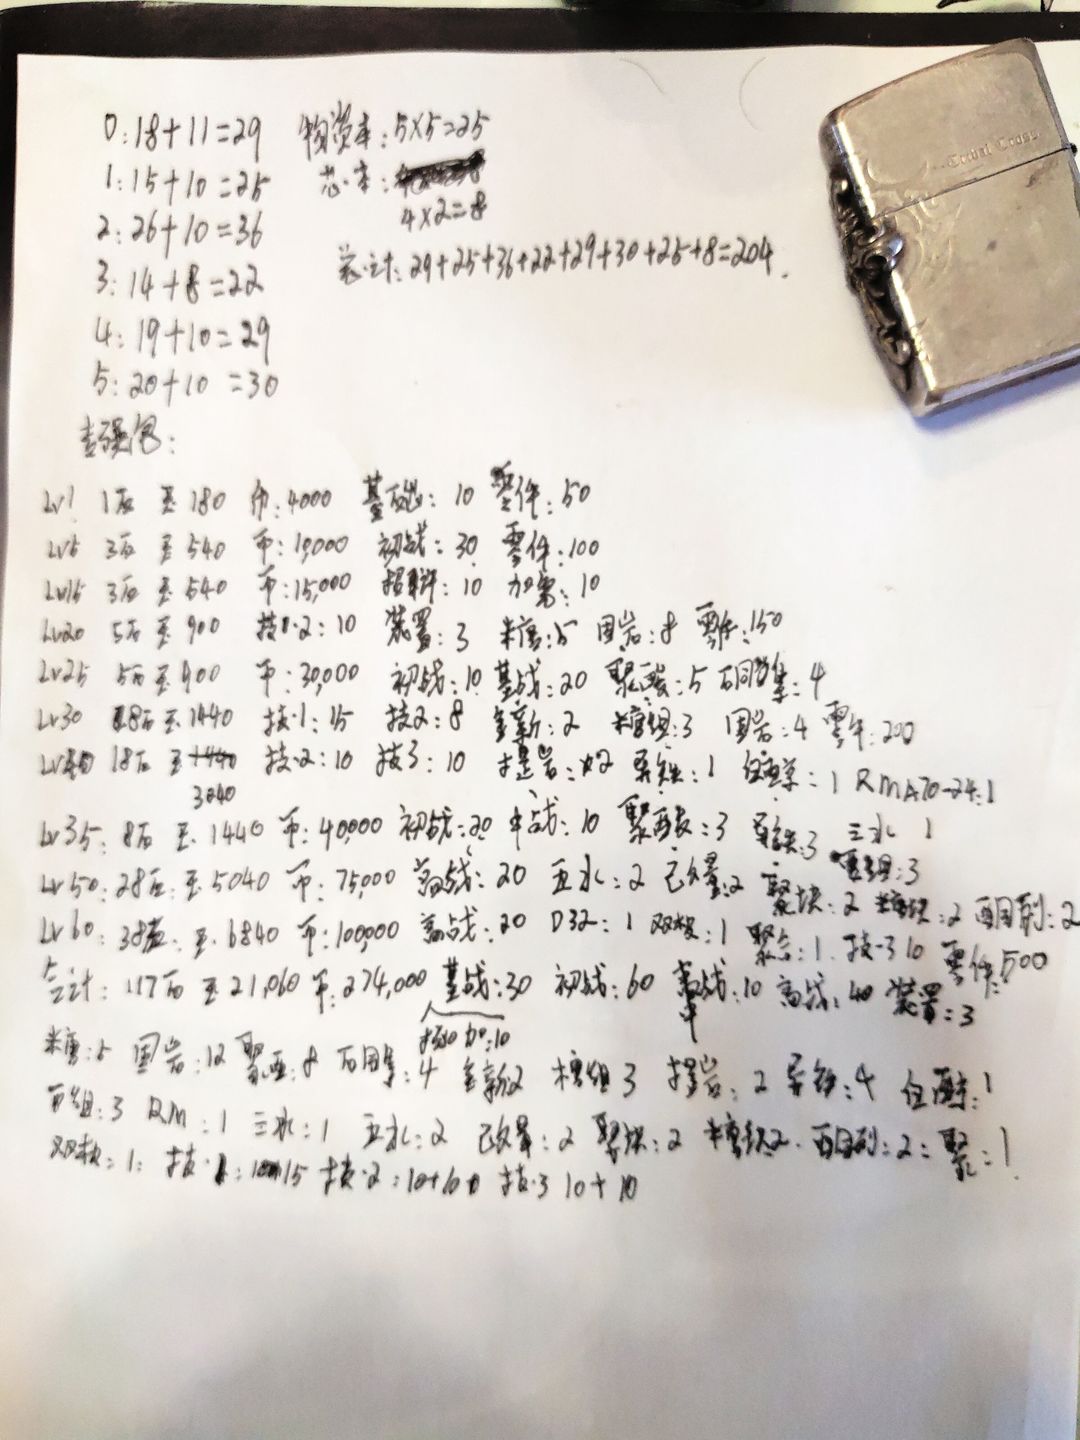 0:18+11=29 物资本:5×5=25
1:15+10=25 芯·本:
4×2=8
2:26+10=36
总计:29+25+36+22+29+30+25+8=204.
3:14+8=22
4:19+10=29
5:20+10=30
Tribal Cross
Lv1 1石 玉 180 币:4000 基础:10 零件:50
Lv5 3石 玉 540 币:10,000 初战:30 零件:100
Lv15 3石 玉 540 币:15,000 招聘:10 加急:10
Lv20 5石 玉 900 技·2:10 装置:3 糖:5 固岩:8 零件:150
Lv25 5石 玉 900 币:30,000 初战:10 基战:20 聚酸:5 酮集:4
Lv30 8石 玉 1440 技·1:15 技2:8 全新:2 糖组:3 固岩:4 零件:200
Lv40 18石 玉 1440 技·2:10 技3:10 提岩:2 异铁:1 白马醇:1 RMA70-24:1
3240
Lv35:8石 玉 1440 币:40,000 初战:20 中战:10 聚酸:3 异铁:3 三水 1
组:3
Lv50:28石:玉5040 币:75,000 高战:20 五水:2 改量:2 聚块:2 糖块:2 酮列:2
Lv60:38石:玉 6840 币:100,000 高战:20 D32:1 双极:1 聚合:1 技·3 10 零件:500
合计:117石 玉21,060 币:274,000 基战:30 初战:60 中战:10 高战:40 装置:3
招10 加:10
糖:5 固岩:12 聚酸:8 酮集:4 全新2 糖组3 提岩:2 异铁:4 白醇:1
组:3 RM:1 三水:1 五水:2 改量:2 聚块:2 糖块2 酮列:2 聚:1
双极:1 技·1:15 技·2:10+ 技·3 10+10